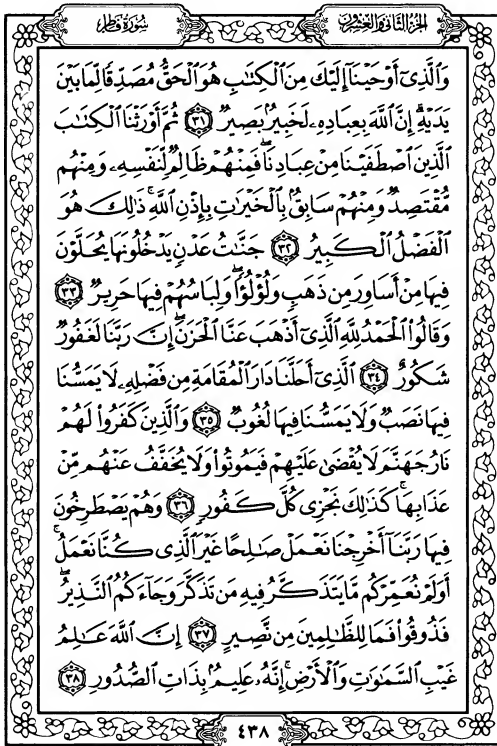 سُورَةُ فَاطِرٍ
الجُزْءُ الثَّانِي وَالعِشْرُونَ
وَٱلَّذِىٓ أَوْحَيْنَآ إِلَيْكَ مِنَ ٱلْكِتَٰبِ هُوَ ٱلْحَقُّ مُصَدِّقًا لِّمَا بَيْنَ
يَدَيْهِ ۗ إِنَّ ٱللَّهَ بِعِبَادِهِۦ لَخَبِيرٌۢ بَصِيرٌ ﴿٣١﴾ ثُمَّ أَوْرَثْنَا ٱلْكِتَٰبَ
ٱلَّذِينَ ٱصْطَفَيْنَا مِنْ عِبَادِنَا ۖ فَمِنْهُمْ ظَالِمٌ لِّنَفْسِهِۦ وَمِنْهُم
مُّقْتَصِدٌ وَمِنْهُمْ سَابِقٌۢ بِٱلْخَيْرَٰتِ بِإِذْنِ ٱللَّهِ ۚ ذَٰلِكَ هُوَ
ٱلْفَضْلُ ٱلْكَبِيرُ ﴿٣٢﴾ جَنَّٰتُ عَدْنٍ يَدْخُلُونَهَا يُحَلَّوْنَ
فِيهَا مِنْ أَسَاوِرَ مِن ذَهَبٍ وَلُؤْلُؤًا ۖ وَلِبَاسُهُمْ فِيهَا حَرِيرٌ ﴿٣٣﴾
وَقَالُوا۟ ٱلْحَمْدُ لِلَّهِ ٱلَّذِىٓ أَذْهَبَ عَنَّا ٱلْحَزَنَ ۖ إِنَّ رَبَّنَا لَغَفُورٌ
شَكُورٌ ﴿٣٤﴾ ٱلَّذِىٓ أَحَلَّنَا دَارَ ٱلْمُقَامَةِ مِن فَضْلِهِۦ لَا يَمَسُّنَا
فِيهَا نَصَبٌ وَلَا يَمَسُّنَا فِيهَا لُغُوبٌ ﴿٣٥﴾ وَٱلَّذِينَ كَفَرُوا۟ لَهُمْ
نَارُ جَهَنَّمَ لَا يُقْضَىٰ عَلَيْهِمْ فَيَمُوتُوا۟ وَلَا يُخَفَّفُ عَنْهُم مِّنْ
عَذَابِهَا ۚ كَذَٰلِكَ نَجْزِى كُلَّ كَفُورٍ ﴿٣٦﴾ وَهُمْ يَصْطَرِخُونَ
فِيهَا رَبَّنَآ أَخْرِجْنَا نَعْمَلْ صَٰلِحًا غَيْرَ ٱلَّذِى كُنَّا نَعْمَلُ ۚ
أَوَلَمْ نُعَمِّرْكُم مَّا يَتَذَكَّرُ فِيهِ مَن تَذَكَّرَ وَجَآءَكُمُ ٱلنَّذِيرُ ۖ
فَذُوقُوا۟ فَمَا لِلظَّٰلِمِينَ مِن نَّصِيرٍ ﴿٣٧﴾ إِنَّ ٱللَّهَ عَٰلِمُ
غَيْبِ ٱلسَّمَٰوَٰتِ وَٱلْأَرْضِ ۚ إِنَّهُۥ عَلِيمٌۢ بِذَاتِ ٱلصُّدُورِ ﴿٣٨﴾
٤٣٨